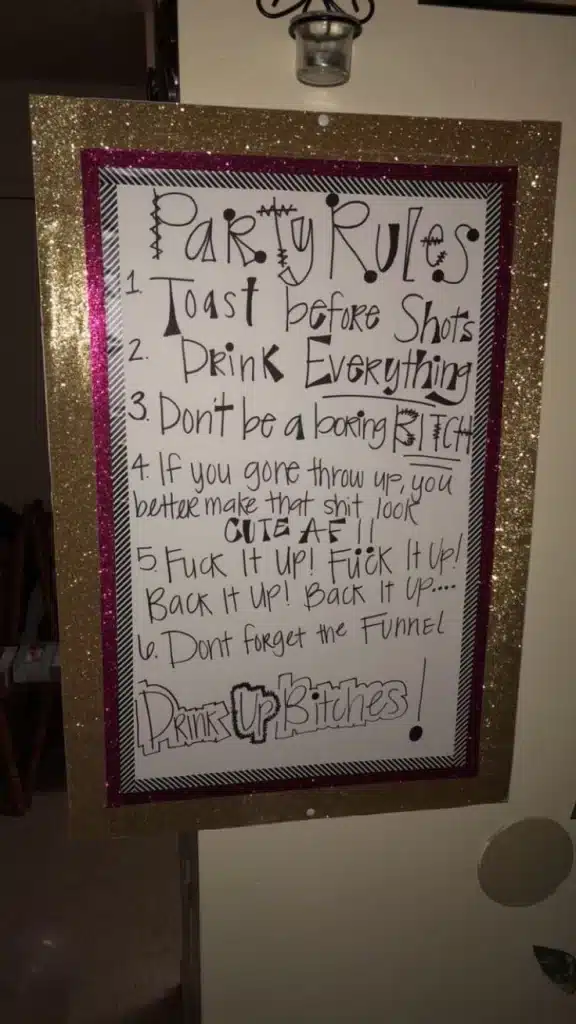 Party Rules
1. Toast before Shots
2. Drink Everything
3. Don't be a boring BITCH
4. If you gone throw up, you
better make that shit look
CUTE AF !!
5. Fuck It Up! Fuck It Up!
Back It Up! Back It Up....
6. Dont forget the Funnel
Drink Up Bitches!